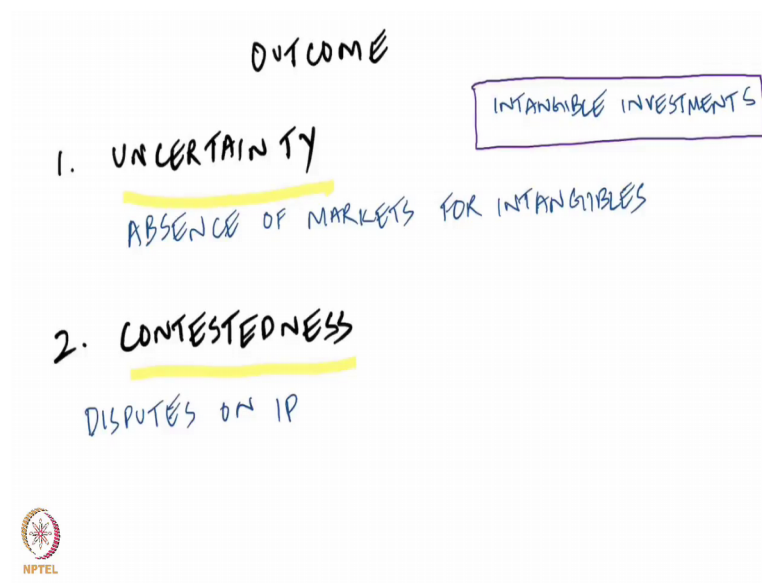 OUTCOME
INTANGIBLE INVESTMENTS
1. UNCERTAINTY
ABSENCE OF MARKETS FOR INTANGIBLES
2. CONTESTEDNESS
DISPUTES ON IP
NPTEL